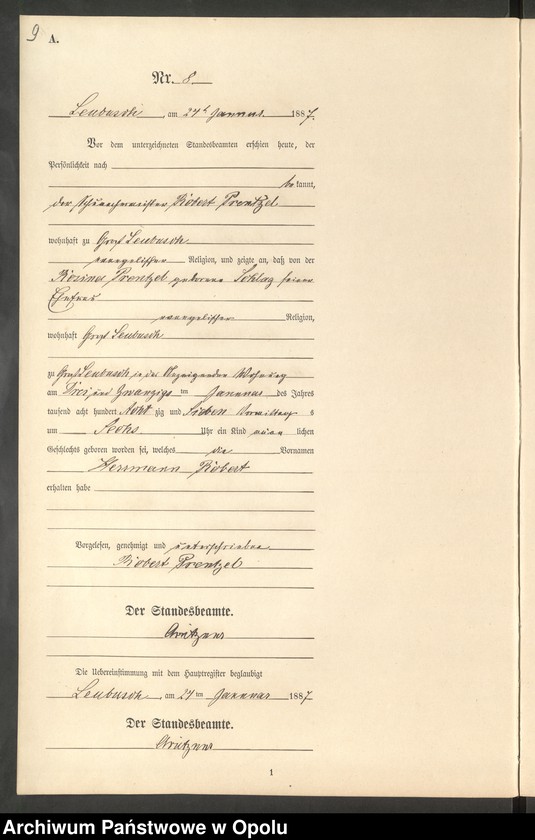 9
A.
Nr. 8.
Leubusch, am 24t Januar 1887.
Vor dem unterzeichneten Standesbeamten erschien heute, der
Persönlichkeit nach
be kannt,
der Robert Prentzel
wohnhaft zu Groß Leubusch
evangelischer Religion, und zeigte an, daß von der
Rosina Prentzel geborene Schlag seiner
Ehefrau
evangelischer Religion,
wohnhaft Groß Leubusch
zu Groß Leubusch in der Wohnung
am Drei und Zwanzigs ten Januar des Jahres
tausend acht hundert Acht zig und Sieben Vormittag s
um Sechs Uhr ein Kind männ lichen
Geschlechts geboren worden sei, welches die Vornamen
Herrmann Robert
erhalten habe
Vorgelesen, genehmigt und unterschrieben
Robert Prentzel
Der Standesbeamte.
Die Uebereinstimmung mit dem Hauptregister beglaubigt
Leubusch, am 24 ten Januar 1887
Der Standesbeamte.
1
Archiwum Państwowe w Opolu